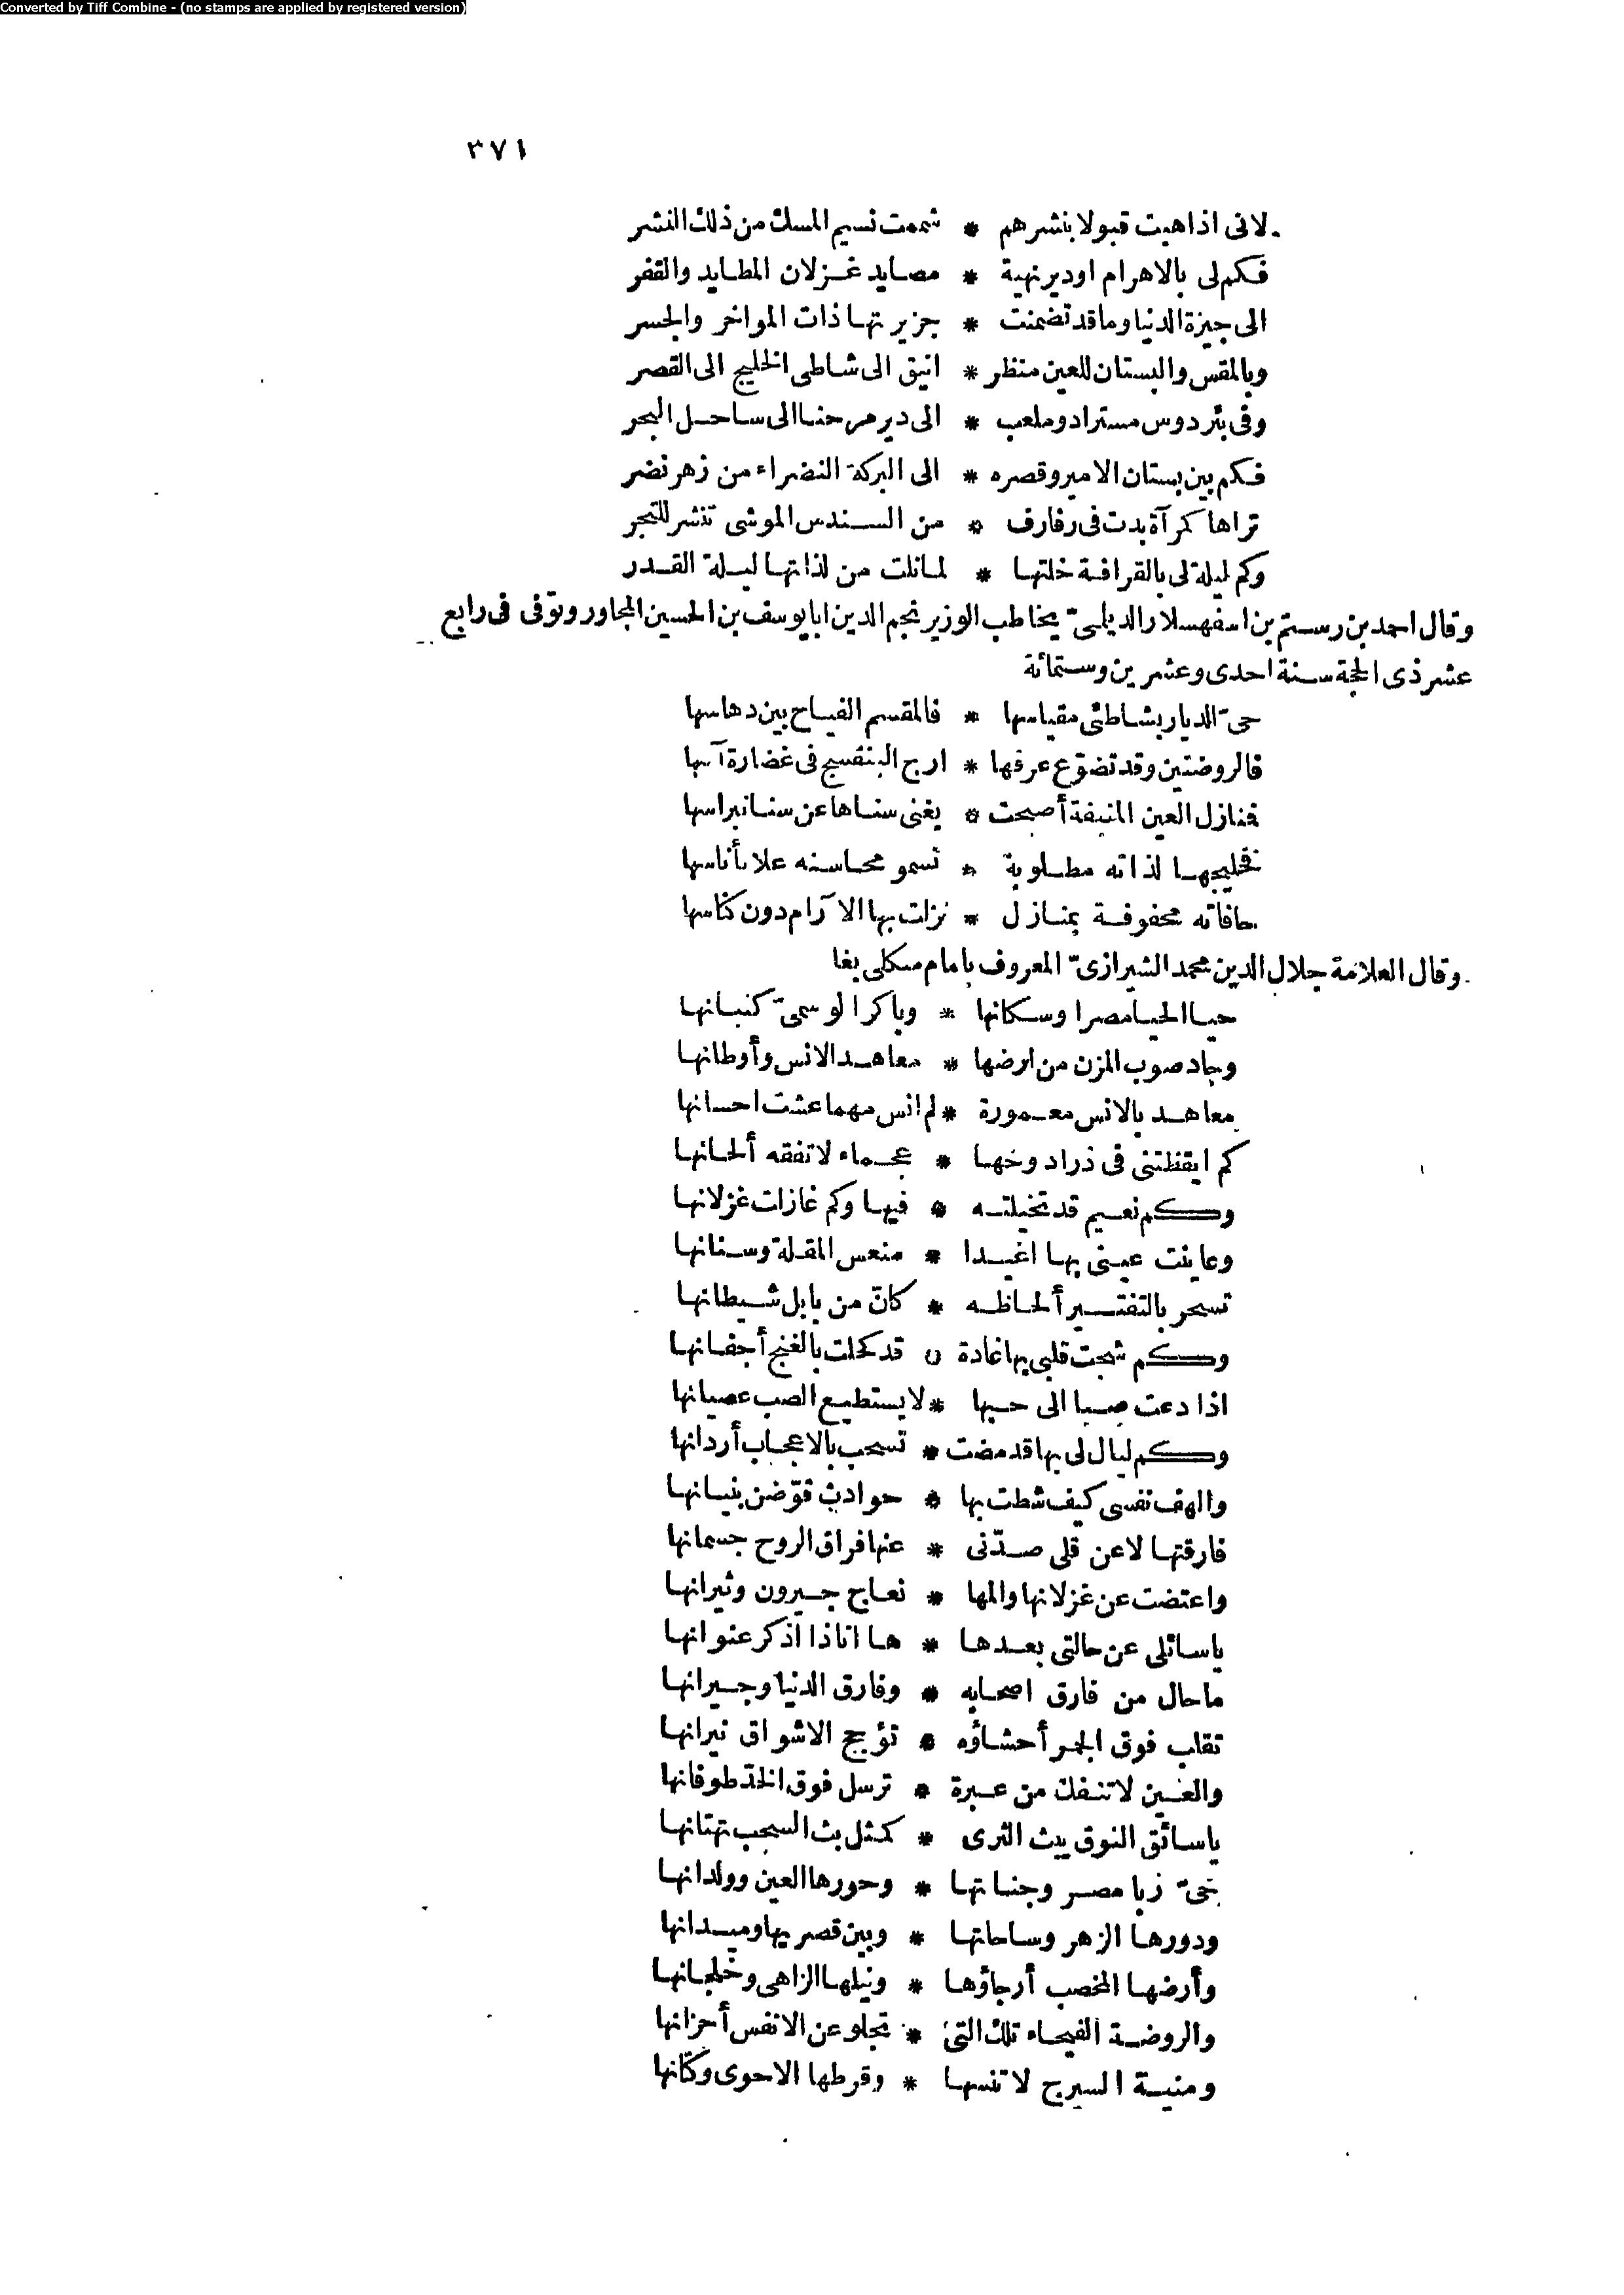 Converted by Tiff Combine - (no stamps are applied by registered version)
٣٧١
لانى اذا هبت قبولا بنشرهم * شممت نسيم المسك من ذلك النشر
فكم لى بالاهرام او دير نهية * مصايد غزلان المطايد والقفر
الى جيزة الدنيا وما قد تضمنت * جزيرتها ذات المواخر والجسر
وبالمقس والبستان للعين منظر * انيق الى شاطى الخليج الى القصر
وفى بئر دوس مستراد وملعب * الى دير مرحنا الى ساحل البحر
فكم بين بستان الامير وقصره * الى البركة النضراء من زهر نضر
تراها كمرآة بدت فى رفارف * من السندس الموشى تنشر للتجر
وكم ليلة لى بالقرافة خلتها * لما نلت من لذاتها ليلة القدر
وقال احمد بن رستم بن اسفهسلار الديلمىّ يخاطب الوزير نجم الدين ابا يوسف بن الحسين المجاور وتوفى فى رابع
عشر ذى الحجة سنة احدى وعشرين وستمائة
حىّ الديار بشاطئ مقياسها * فالمقسم الفياح بين دهاسها
فالروضتين وقد تضوّع عرفها * ارج البنفسج فى غضارة آسها
فمنازل العين المنيفة أصبحت * يغنى سناها عن سنا نبراسها
فخليجها لذاته مطلوبة * تسمو محاسنه علا بأناسها
حافاته محفوفة بمنازل * نزلت بها الآرام دون كناسها
وقال العلامة جلال الدين محمد الشيرازىّ المعروف بامام منكلى بغا
حيا الحيا مصرا وسكانها * وباكر الوسمىّ كثبانها
وجاد صوب المزن من ارضها * معاهد الانس وأوطانها
معاهد بالانس معمورة * لم انس مهما عشت احسانها
كم ايقظتنى فى ذرا دوحها * عجماء لا تفقه ألحانها
وكم نعيم قد تخيلته * فيها وكم غازلت غزلانها
وعاينت عينى بها اغيدا * منعس المقلة وسنانها
تسحر بالتفتير ألحاظه * كانّ من بابل شيطانها
وكم شجت قلبى بها غادة * قد كحلت بالغنج أجفانها
اذا دعت صبا الى حبها * لا يستطيع الصب عصيانها
وكم ليال لى بها قد مضت * تسحب بالاعجاب أردانها
والهف نفسى كيف شطت بها * حوادث قوّضن بنيانها
فارقتها لا عن قلى صدّنى * عنها فراق الروح جسمانها
واعتضت عن غزلانها والمها * نعاج جيرون وثيرانها
يا سائلى عن حالتى بعدها * ها انا ذا اذكر عنوانها
ما حال من فارق اصحابه * وفارق الدنيا وجيرانها
تقلب فوق الجمر أحشاؤه * تؤجج الاشواق نيرانها
والعين لا تنفك من عبرة * ترسل فوق الخدّ طوفانها
يا سائق النوق يبث الثرى * كمثل بث السحب تهتانها
حىّ ربا مصر وجناتها * وحورها العين وولدانها
ودورها الزهر وساحاتها * وبين قصريها وميدانها
وأرضها المخصب أرجاؤها * ونيلها الزاهى وخلجانها
والروضة الفيحاء تلك التى * تجلو عن الانفس أحزانها
ومنية السيرج لا تنسها * وقرطها الاحوى وكتانها